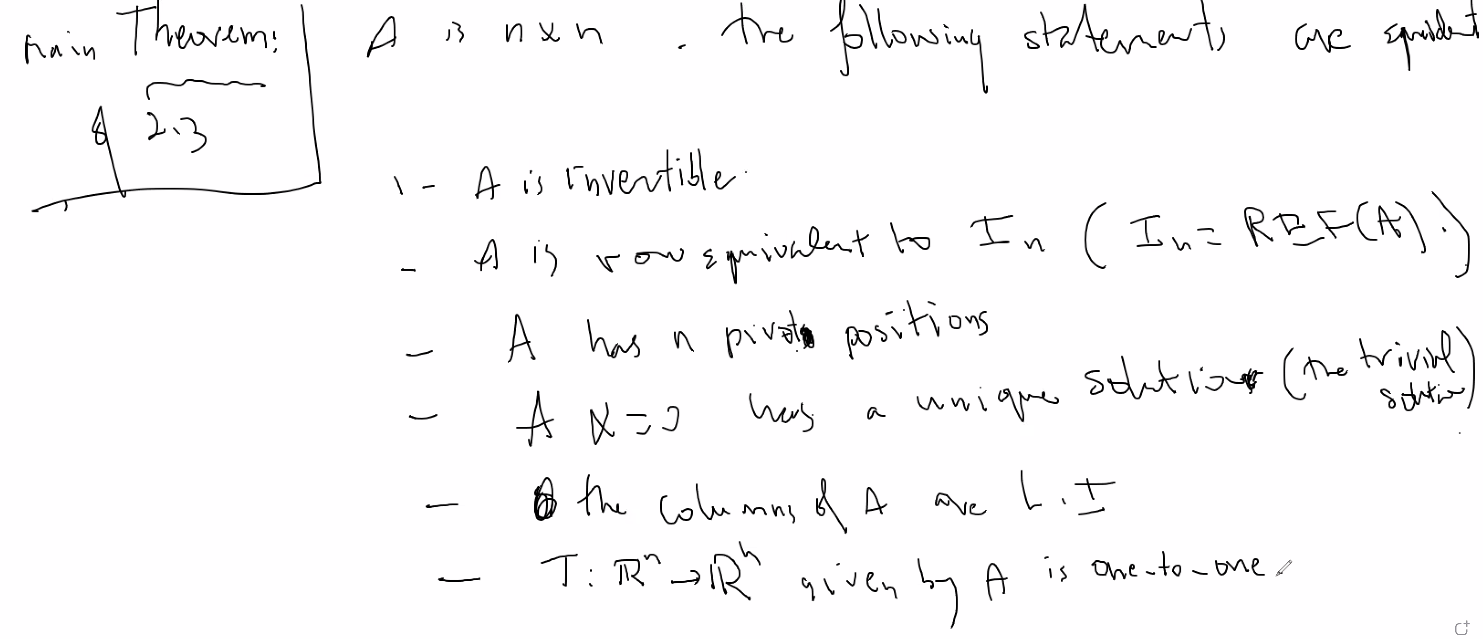 main Theorem: A is n x n . the following statements are equivalent
§ 2.3
1 - A is invertible.
- A is row equivalent to In ( In = REF(A).)
- A has n pivots positions
- A x = 0 has a unique solution (the trivial solution)
- the columns of A are L.I
- T: ℝⁿ → ℝⁿ given by A is one-to-one.